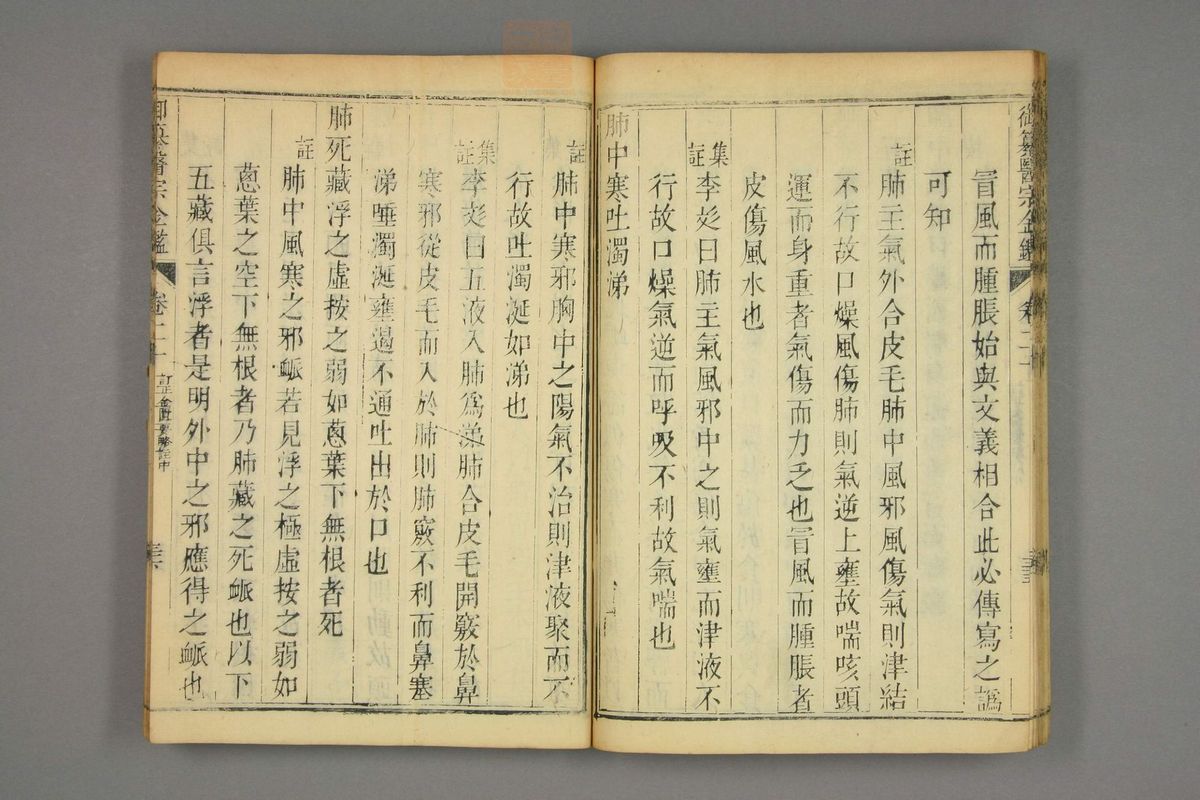 御纂醫宗金鑑 卷二十
冒風而腫脹始與文義相合此必傳寫之譌
可知
註 肺主氣外合皮毛肺中風邪風傷氣則津結
不行故口燥風傷肺則氣逆上壅故喘咳頭
運而身重者氣傷而力乏也冒風而腫脹者
皮傷風水也
集註 李彣曰肺主氣風邪中之則氣壅而津液不
行故口燥氣逆而呼吸不利故氣喘也
肺中寒吐濁涕
註 肺中寒邪胸中之陽氣不治則津液聚而不
行故吐濁涎如涕也
集註 李彣曰五液入肺為涕肺合皮毛開竅於鼻
寒邪從皮毛而入於肺則肺竅不利而鼻塞
涕唾濁涎壅遏不通吐出於口也
肺死藏浮之虛按之弱如蔥葉下無根者死
註 肺中風寒之邪脈若見浮之極虛按之弱如
蔥葉之空下無根者乃肺藏之死脈也以下
五藏俱言浮者是明外中之邪應得之脈也
御纂醫宗金鑑 卷二十 訂正金匱要略註中